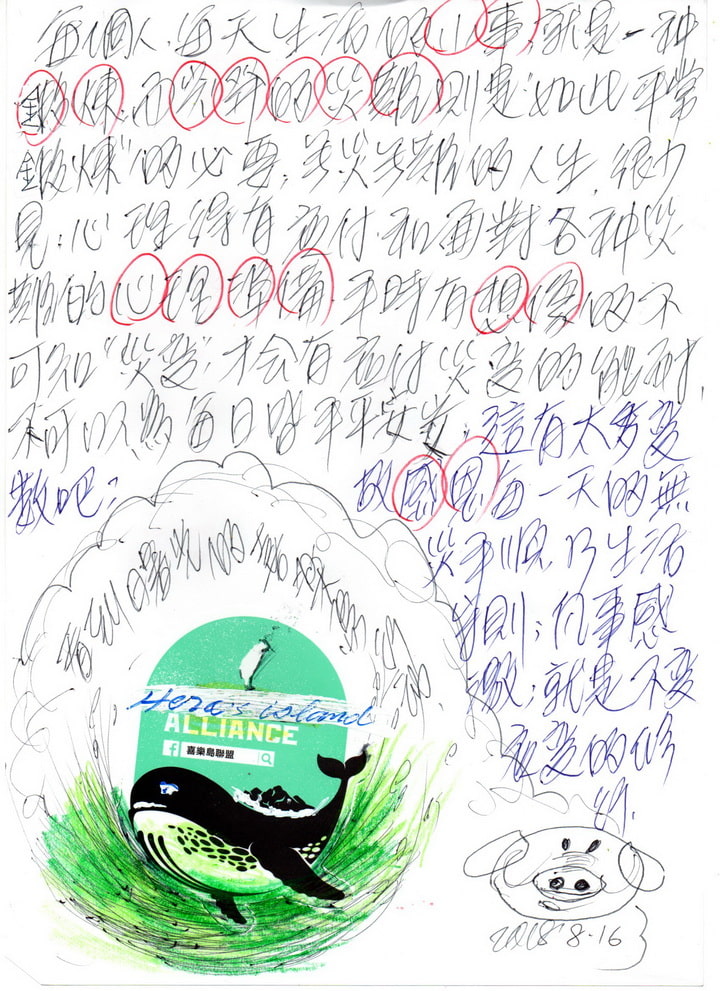 每個人,每天生活的小事,就是一种
鍛煉.而災難的災難則是"如此平常
鍛煉"的必要;無災無難的人生.很少
見;心理得有应付和面對各种災
難的心理準備.平時有想像的不
可知"災变",才会有应付災变的能耐,
不可以為每日皆平平安安;這有太多变
數吧?
故感恩每一天的無
災平順乃生活
準則;凡事感
激;就是不变
应变的修
行.
看到日
Hero's island
ALLIANCE
喜樂島聯盟
2018 8-16